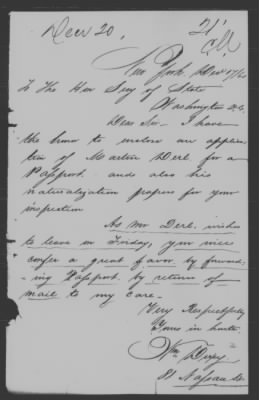 Decr 20,
21
New York Dec 17/60
To The Hon Secy of State
Washington D.C.
Dear Sir - I have
the honor to enclose an applica
tion of Martin Derl. for a
Passport. and also his
naturalization papers for your
inspection
As Mr Derl. wishes
to leave on Friday, you will
confer a great favor by forward
-ing Passport. by return of
mail to my care -
Very Respectfully
Yours in haste.
Wm
Nassau St.